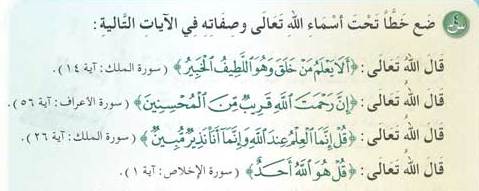 ٤ ضَع خَطًّا تَحْتَ أَسْمَاءِ اللهِ تَعَالَى وصِفَاتِهِ فِي الآيَاتِ التَّالِيَةِ :
قَالَ اللهُ تَعَالَى : ﴿أَلَا يَعْلَمُ مَنْ خَلَقَ وَهُوَ اللَّطِيفُ الْخَبِيرُ﴾ ( سورة الملك: آية ١٤ ).
قَالَ اللهُ تَعَالَى : ﴿إِنَّ رَحْمَتَ اللَّهِ قَرِيبٌ مِّنَ الْمُحْسِنِينَ﴾ ( سورة الأعراف: آية ٥٦ ).
قَالَ اللهُ تَعَالَى : ﴿قُلْ إِنَّمَا الْعِلْمُ عِندَ اللَّهِ وَإِنَّمَا أَنَا نَذِيرٌ مُّبِينٌ﴾ ( سورة الملك: آية ٢٦ ).
قَالَ اللهُ تَعَالَى : ﴿قُلْ هُوَ اللَّهُ أَحَدٌ﴾ ( سورة الإخلاص: آية ١ ).